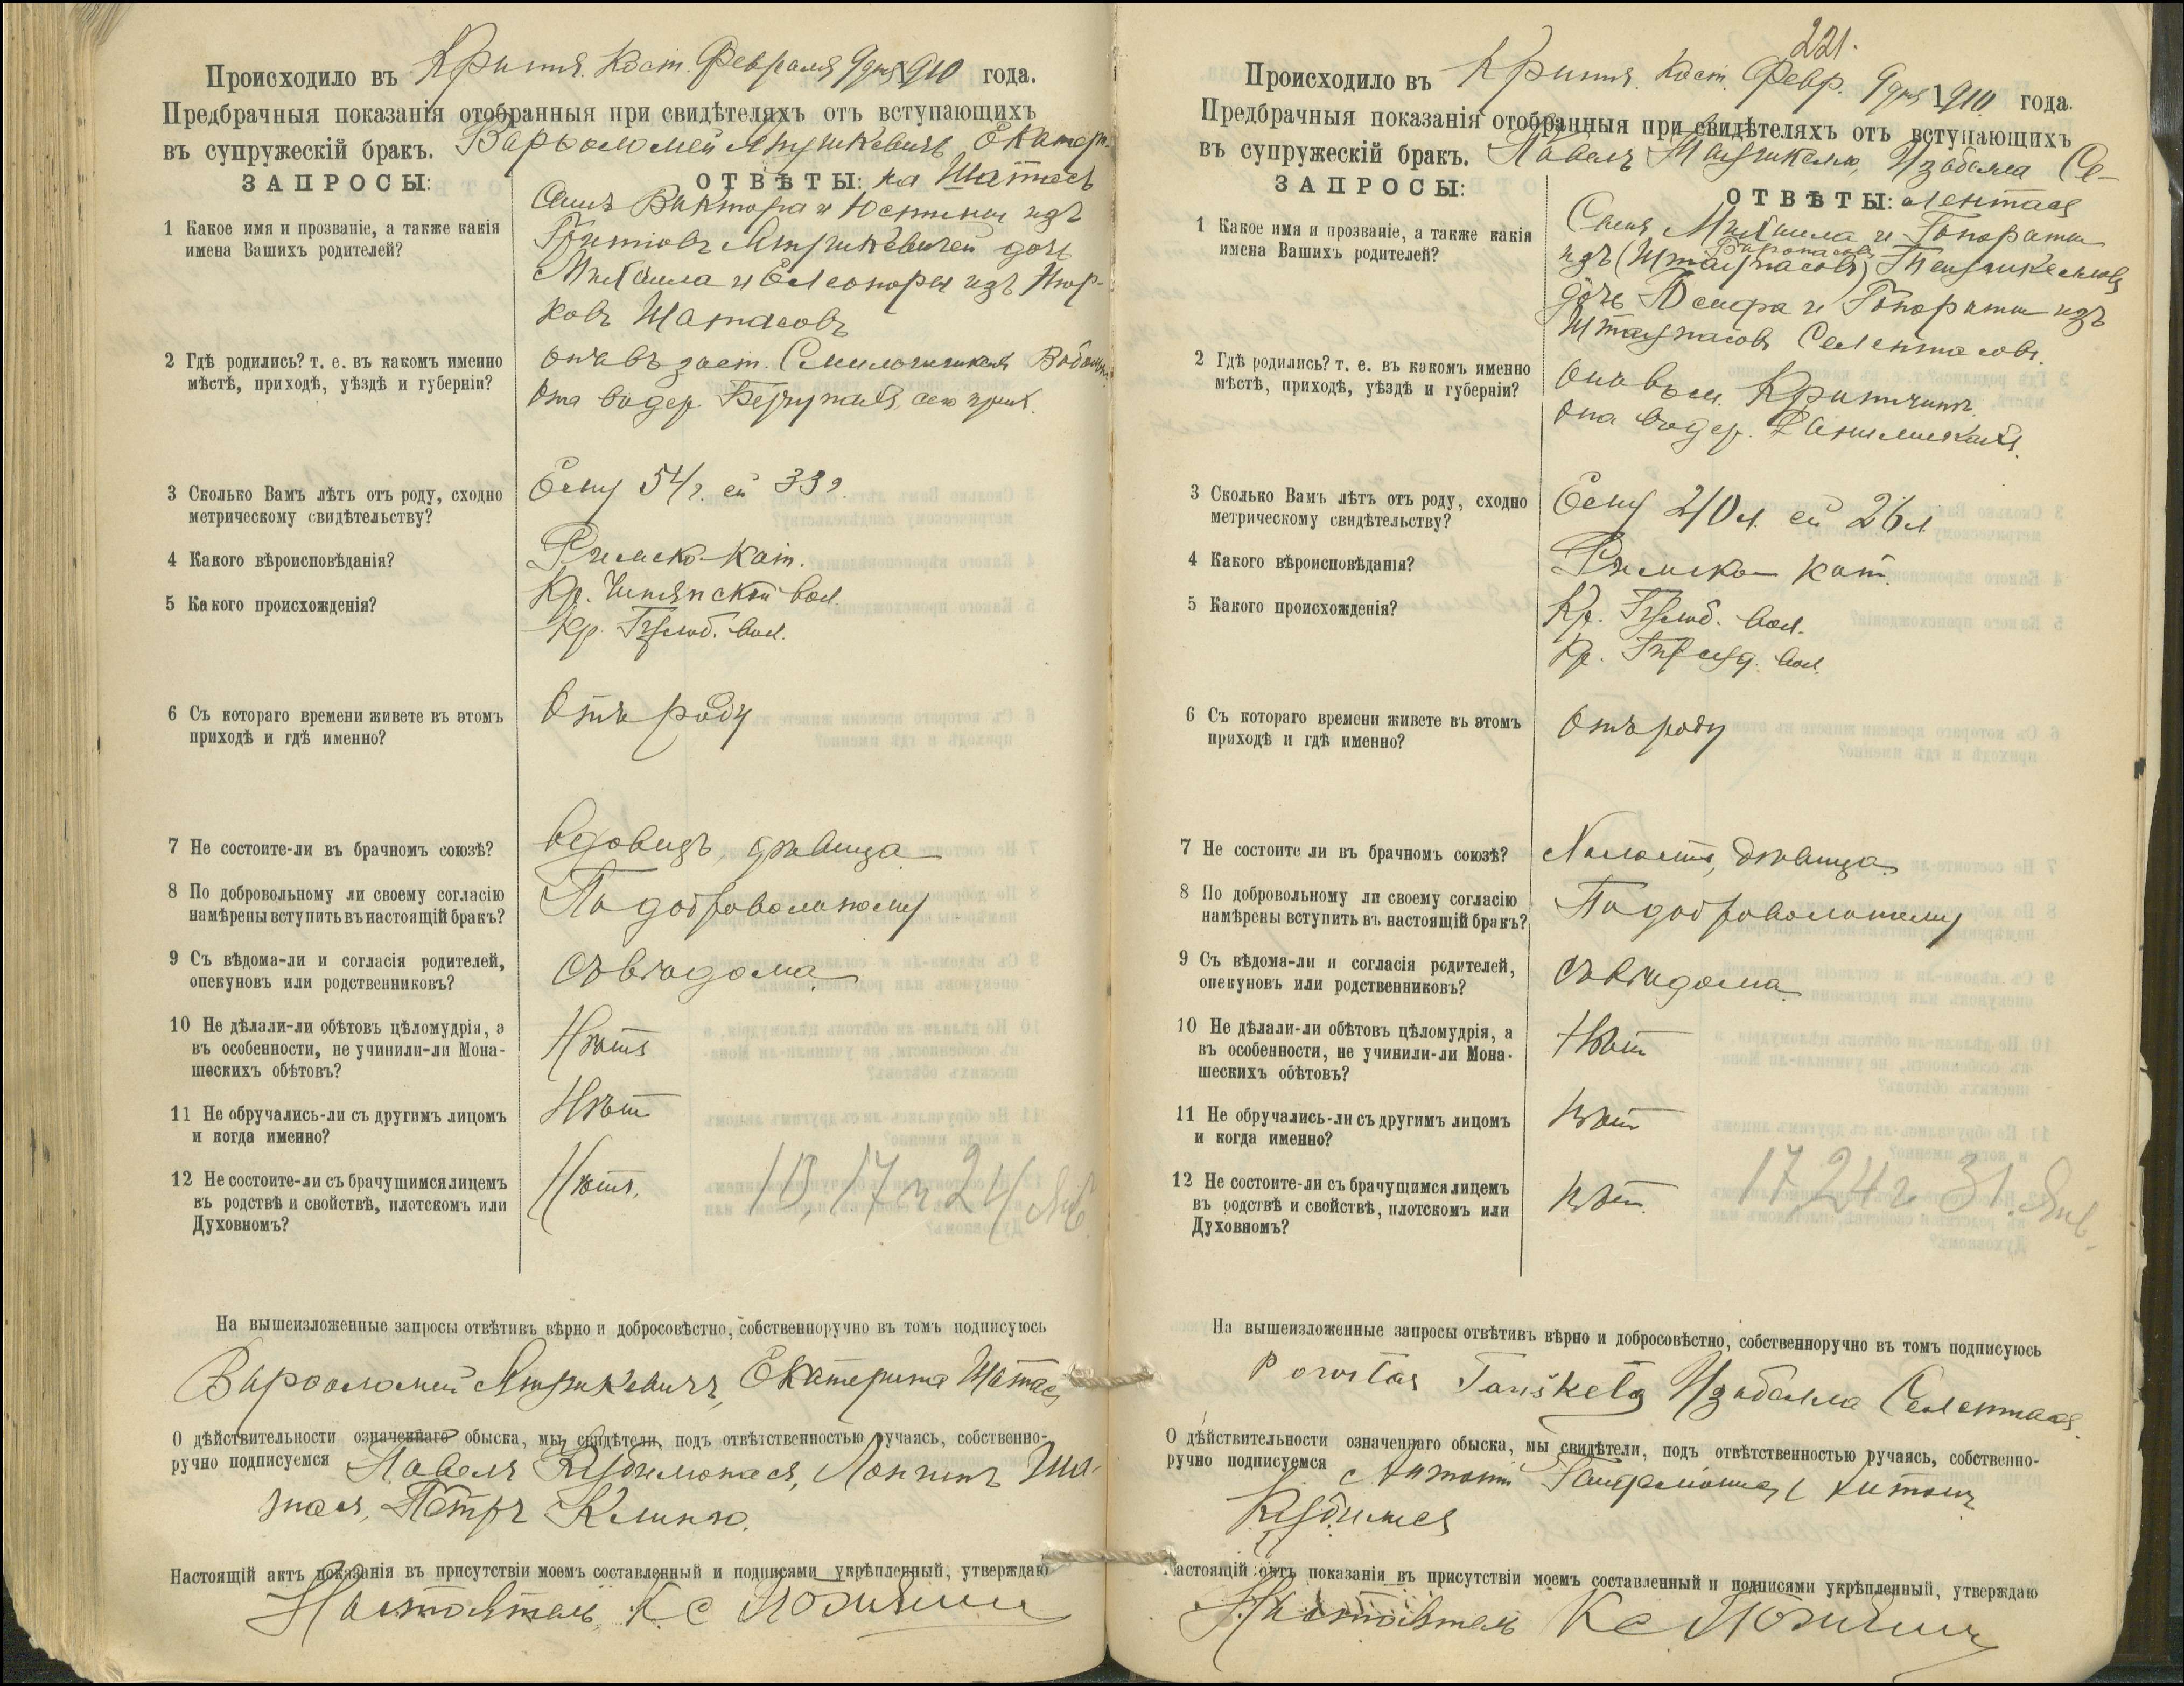 Происходило въ Кринч. Кост. Февраля 9 дня 1910 года.
Предбрачныя показанія отобранныя при свидѣтеляхъ отъ вступающихъ
въ супружескій бракъ. Варѳоломей Янушкевичъ Екатери-
ЗАПРОСЫ:
ОТВѢТЫ: на Шатасъ
1 Какое имя и прозваніе, а также какія
имена Вашихъ родителей?
Сынъ Виктора и Юстины изъ
Янушкевичей дочь
Михаила и Елеоноры изъ
Шатасовъ
2 Гдѣ родились? т. е. въ какомъ именно
мѣстѣ, приходѣ, уѣздѣ и губерніи?
Онъ въ заст.
Она въ дер. сего прих.
3 Сколько Вамъ лѣтъ отъ роду, сходно
метрическому свидѣтельству?
Ему 54 г. ей 33 г.
4 Какого вѣроисповѣданія?
Римско-кат.
5 Какого происхожденія?
Кр. вол.
Кр. вол.
6 Съ котораго времени живете въ этомъ
приходѣ и гдѣ именно?
Отъ роду
7 Не состоите-ли въ брачномъ союзѣ?
Вдовецъ, дѣвица
8 По добровольному ли своему согласію
намѣрены вступить въ настоящій бракъ?
По добровольному
9 Съ вѣдома-ли и согласія родителей,
опекуновъ или родственниковъ?
Съ вѣдома
10 Не дѣлали-ли обѣтовъ цѣломудрія, а
въ особенности, не учинили-ли Мона-
шескихъ обѣтовъ?
Нѣтъ
11 Не обручались-ли съ другимъ лицомъ
и когда именно?
Нѣтъ
12 Не состоите-ли съ брачущимся лицемъ
въ родствѣ и свойствѣ, плотскомъ или
Духовномъ?
Нѣтъ.
10, 17 и 24 Янв.
На вышеизложенные запросы отвѣтивъ вѣрно и добросовѣстно, собственноручно въ томъ подписуюсь
Варѳоломей Янушкевичъ, Екатерина Шатасъ
О дѣйствительности означеннаго обыска, мы свидѣтели, подъ отвѣтственностью ручаясь, собственно-
ручно подписуемся Павелъ
Петръ
Настоящій актъ показанія въ присутствіи моемъ составленный и подписями укрѣпленный, утверждаю
Настоятель Кс
221.
Происходило въ Кринч. Кост. Февр. 9 дня 1910 года.
Предбрачныя показанія отобранныя при свидѣтеляхъ отъ вступающихъ
въ супружескій бракъ. Павелъ Изабелла Се-
ЗАПРОСЫ:
ОТВѢТЫ: лентасъ
1 Какое имя и прозваніе, а также какія
имена Вашихъ родителей?
Сынъ Михаила и Гонораты
изъ
дочь Осифа и Гонораты изъ
Селентасовъ.
2 Гдѣ родились? т. е. въ какомъ именно
мѣстѣ, приходѣ, уѣздѣ и губерніи?
Онъ въ м. Кринчинъ
Она въ дер.
3 Сколько Вамъ лѣтъ отъ роду, сходно
метрическому свидѣтельству?
Ему 40 л. ей 26 л.
4 Какого вѣроисповѣданія?
Римско-кат.
5 Какого происхожденія?
Кр. вол.
Кр. вол.
6 Съ котораго времени живете въ этомъ
приходѣ и гдѣ именно?
Отъ роду
7 Не состоите ли въ брачномъ союзѣ?
Холостъ, дѣвица
8 По добровольному ли своему согласію
намѣрены вступить въ настоящій бракъ?
По добровольному
9 Съ вѣдома-ли и согласія родителей,
опекуновъ или родственниковъ?
Съ вѣдома
10 Не дѣлали-ли обѣтовъ цѣломудрія, а
въ особенности, не учинили-ли Мона-
шескихъ обѣтовъ?
Нѣтъ
11 Не обручались-ли съ другимъ лицомъ
и когда именно?
Нѣтъ
12 Не состоите-ли съ брачущимся лицемъ
въ родствѣ и свойствѣ, плотскомъ или
Духовномъ?
Нѣтъ
17, 24 и 31. Янв.
На вышеизложенные запросы отвѣтивъ вѣрно и добросовѣстно, собственноручно въ томъ подписуюсь
Изабелла Селентасъ
О дѣйствительности означеннаго обыска, мы свидѣтели, подъ отвѣтственностью ручаясь, собственно-
ручно подписуемся Антонъ Антонъ
Настоящій актъ показанія въ присутствіи моемъ составленный и подписями укрѣпленный, утверждаю
Настоятель Кс